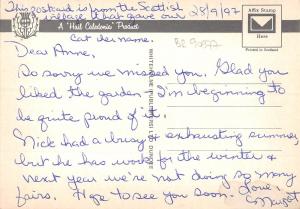 This postcard is from the Scottish
village that gave our 28/9/97
A "Hail Caledonia" Product
cat her name.
Affix Stamp
Here
Printed in Scotland
WHITEHOLME PUBLISHERS LTD DUNDEE
Dear Anne,
So sorry we missed you. Glad you
liked the garden - I'm beginning to
be quite proud of it.
Nick had a busy & exhausting summer,
but he has work for the winter &
next year we're not doing so many
fairs. Hope to see you soon. Love,
Margot